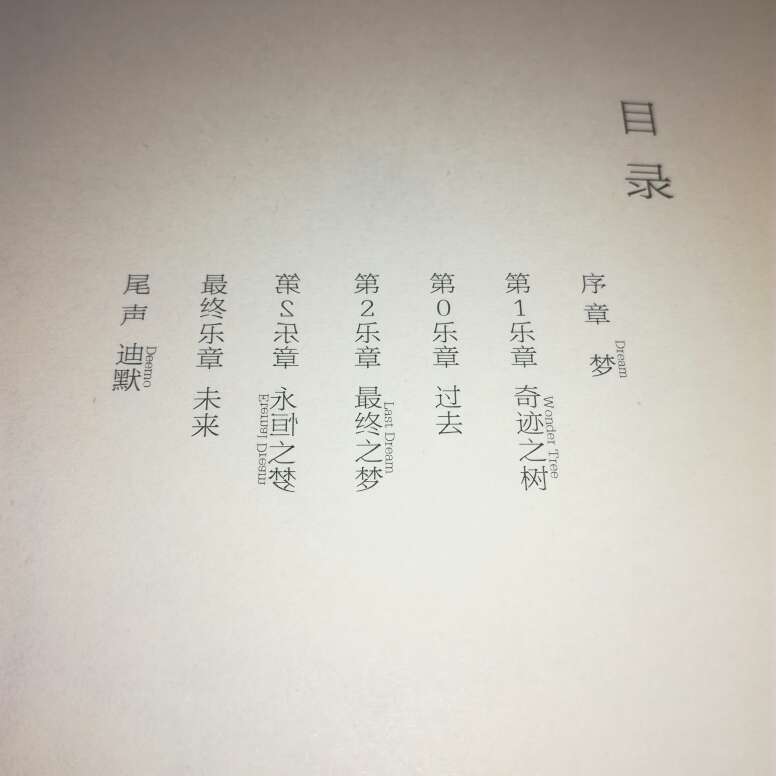 目录
序章 梦
Dream
第1乐章 奇迹之树
Wonder Tree
第0乐章 过去
第2乐章 最终之梦
Last Dream
第2乐章 永恒之梦
Eternal Dream
最终乐章 未来
尾声 迪默
Deemo